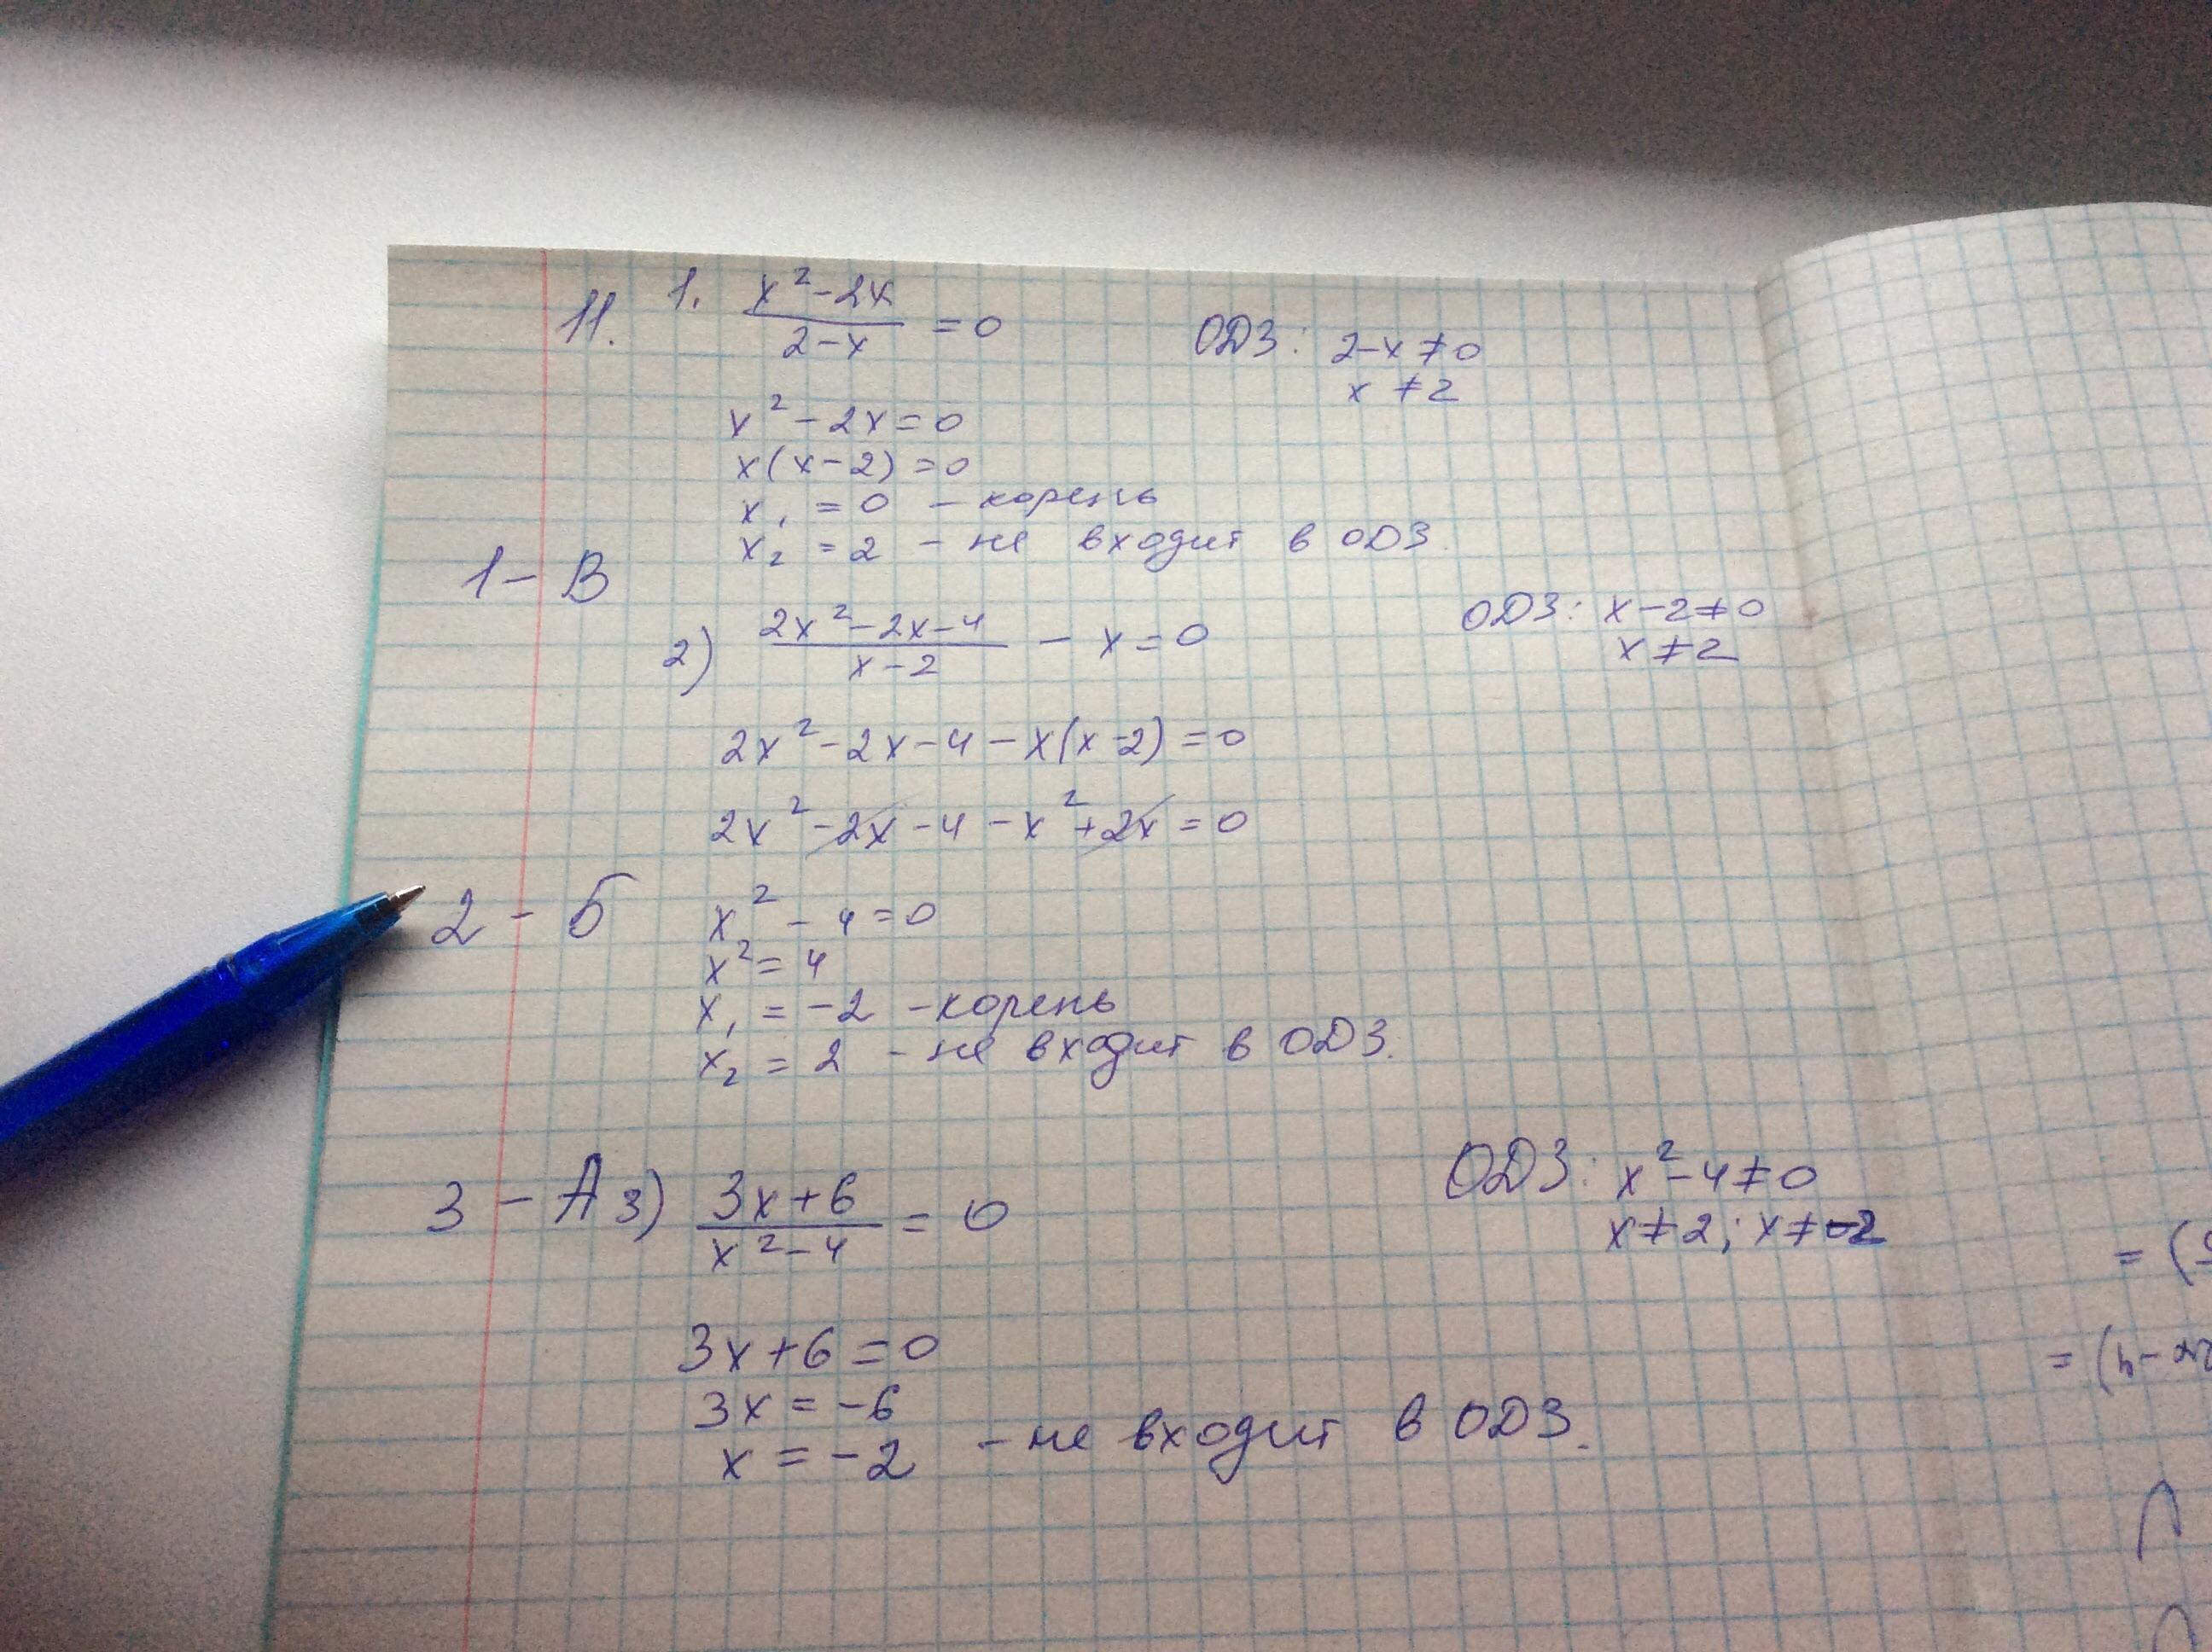 11. 1. (x²-2x)/(2-x) = 0 ОДЗ: 2-x≠0
x≠2
x²-2x=0
x(x-2)=0
x₁=0 - корень
x₂=2 - не входит в ОДЗ.
1-В
2) (2x²-2x-4)/(x-2) - x=0 ОДЗ: x-2≠0
x≠2
2x²-2x-4-x(x-2)=0
2x²-2x-4-x²+2x=0
2-Б x²-4=0
x²=4
x₁=-2 -корень
x₂=2 -не входит в ОДЗ.
3-А 3) (3x+6)/(x²-4) = 0 ОДЗ: x²-4≠0
x≠2; x≠-2
3x+6=0
3x=-6
x=-2 - не входит в ОДЗ.